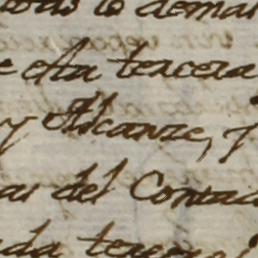 lo demas
e esta tercera
y Alcanze, y
del Contad
tercera